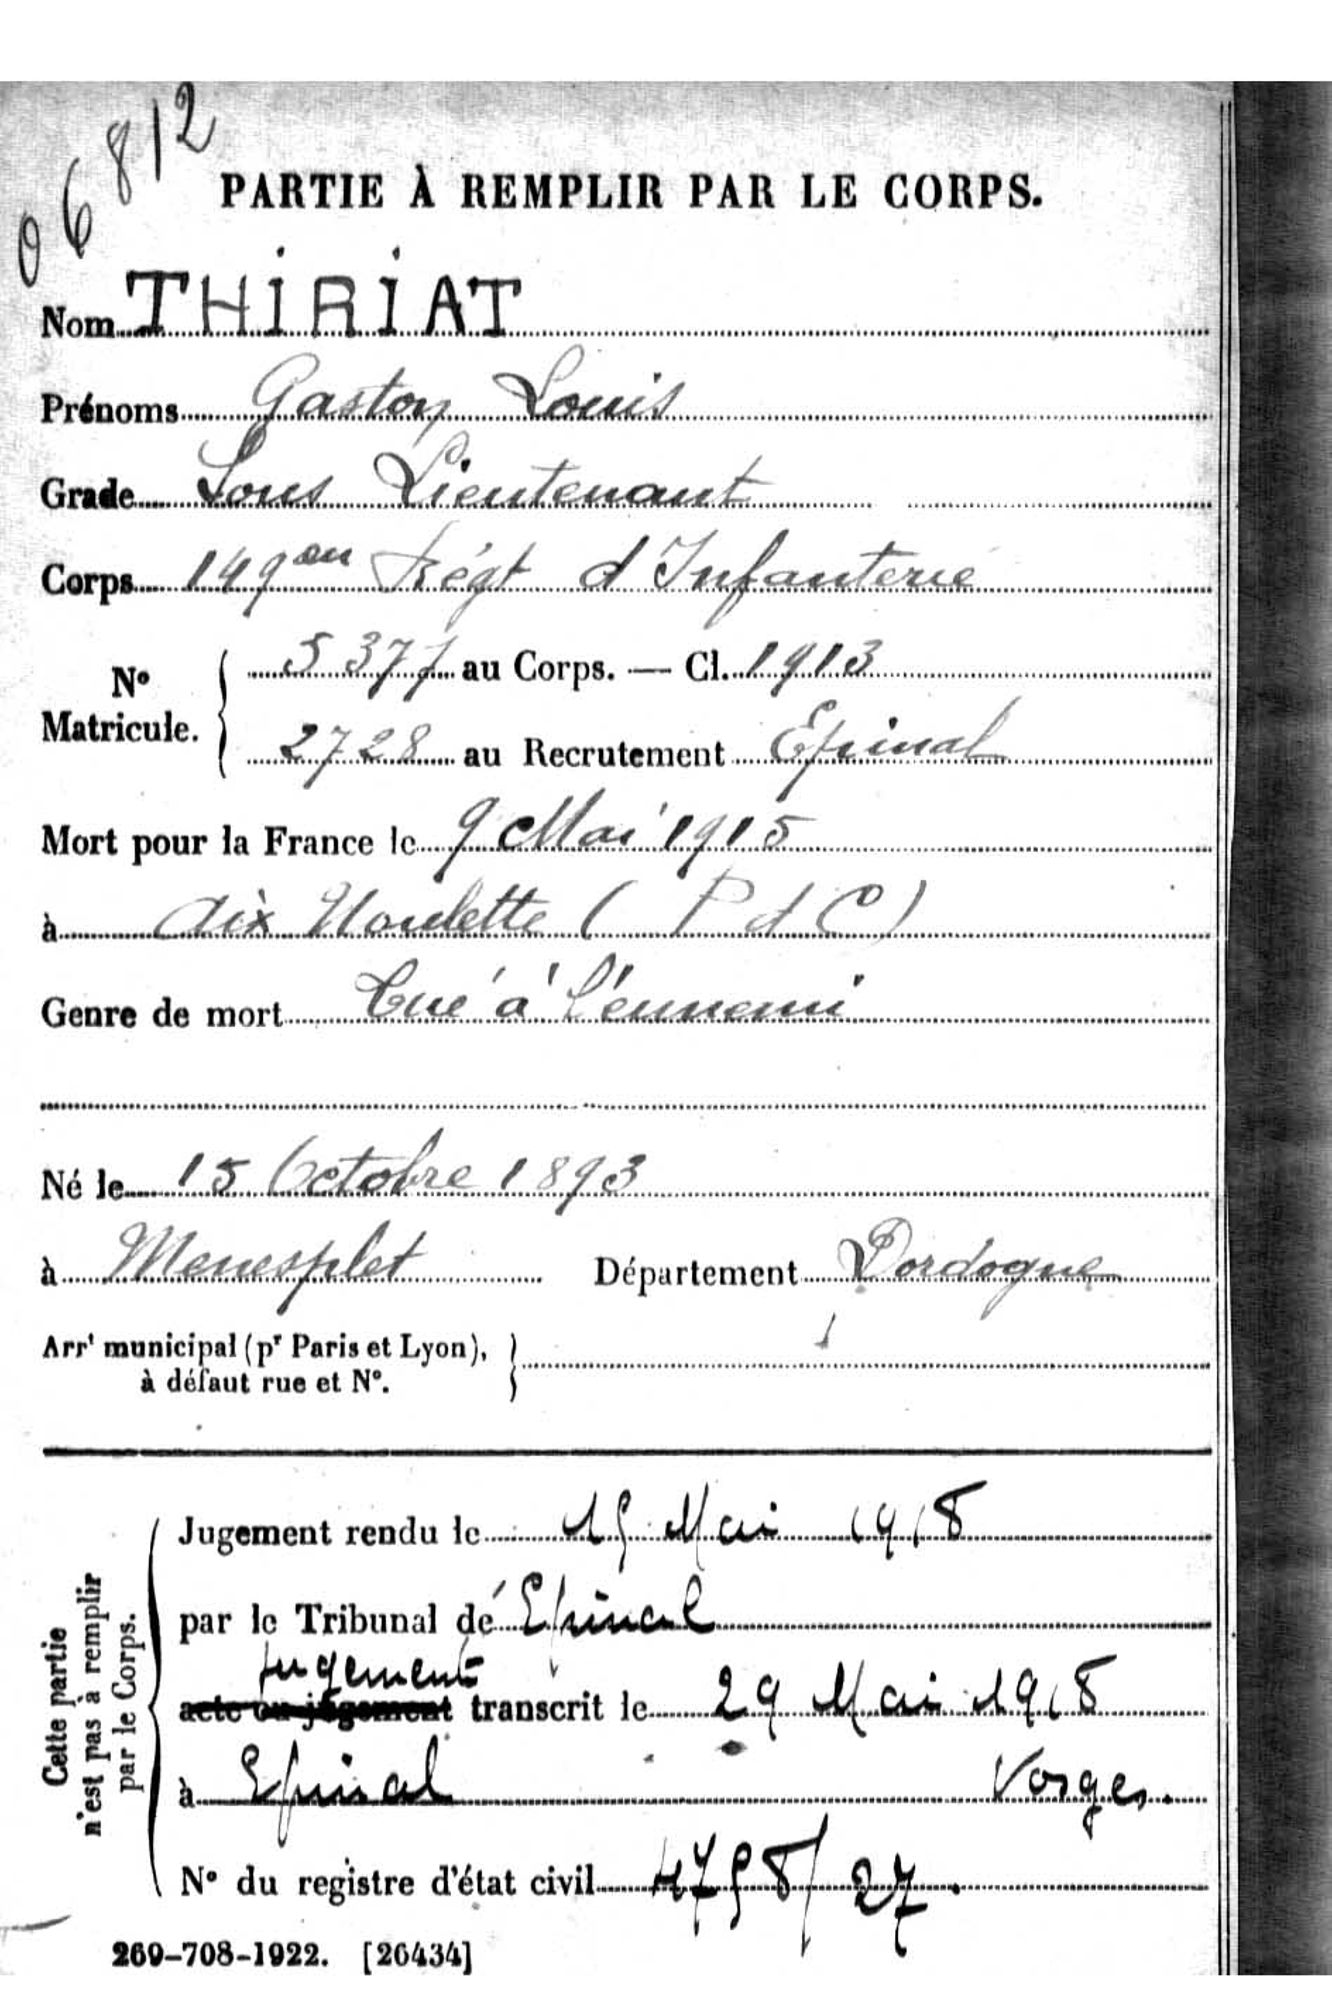 06812
PARTIE À REMPLIR PAR LE CORPS.
Nom THIRIAT
Prénoms Gaston Louis
Grade Sous Lieutenant
Corps 149em Régt d'Infanterie
No Matricule. { 5377 au Corps. — Cl. 1913
2728 au Recrutement Epinal
Mort pour la France le 9 Mai 1915
à Aix Noulette (P d C)
Genre de mort Tué à l'ennemi
Né le 15 Octobre 1893
à Menesplet Département Dordogne
Arrt municipal (pr Paris et Lyon), }
à défaut rue et No.
Cette partie
n'est pas à remplir
par le Corps.
Jugement rendu le 15 Mai 1918
par le Tribunal de Epinal
jugement
acte ou jugement transcrit le 29 Mai 1918
à Epinal Vosges.
No du registre d'état civil 4758/27.
269-708-1922. [26434]